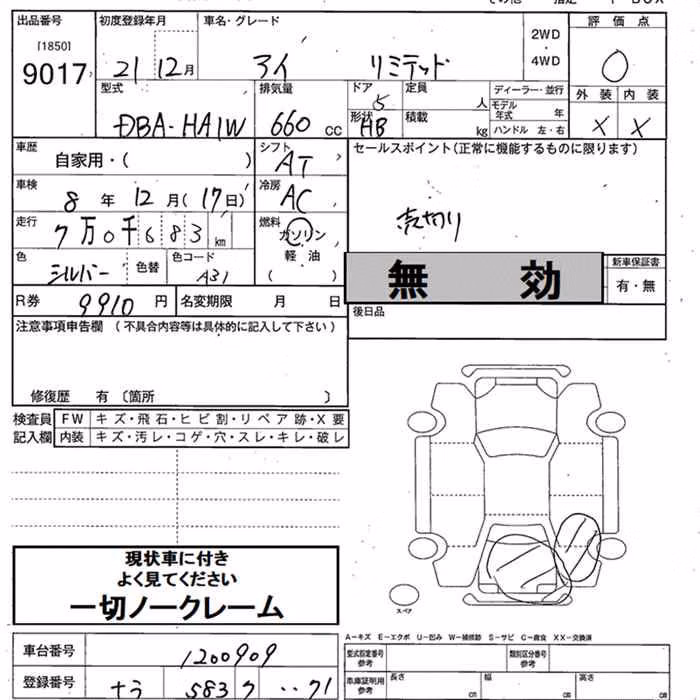 出品番号 初度登録年月 車名・グレード 2WD・4WD 評価点
[1850]
9017 21 12月 アイ リミテッド 0
型式 排気量 ドア 定員 ディーラー・並行 外装 内装
DBA-HA1W 660 cc 5 人 モデル年式 年
形状 HB 積載 kg ハンドル 左・右 X X
車歴 自家用・( ) シフト AT セールスポイント(正常に機能するものに限ります)
車検 8 年 12 月 (17日) 冷房 AC
売切り
走行 7万0千683 km 燃料 ガソリン
軽油
( )
色 シルバー 色替 色コード A31
無効 新車保証書
有・無
R券 9910 円 名変期限 月 日 後日品
注意事項申告欄 (不具合内容等は具体的に記入して下さい)
修復歴 有 〔箇所 〕
検査員 FW キズ・飛石・ヒビ割・リペア跡・X要
記入欄 内装 キズ・汚レ・コゲ・穴・スレ・キレ・破レ
現状車に付き
よく見てください
一切ノークレーム
スペア
A-キズ E-エクボ U-凹み W-補修跡 S-サビ C-腐食 XX-交換済
車台番号 1200909 型式指定番号 参考 類別区分番号 参考
登録番号 583 ‥71 車庫証明用 参考 長さ cm 幅 cm 高さ cm